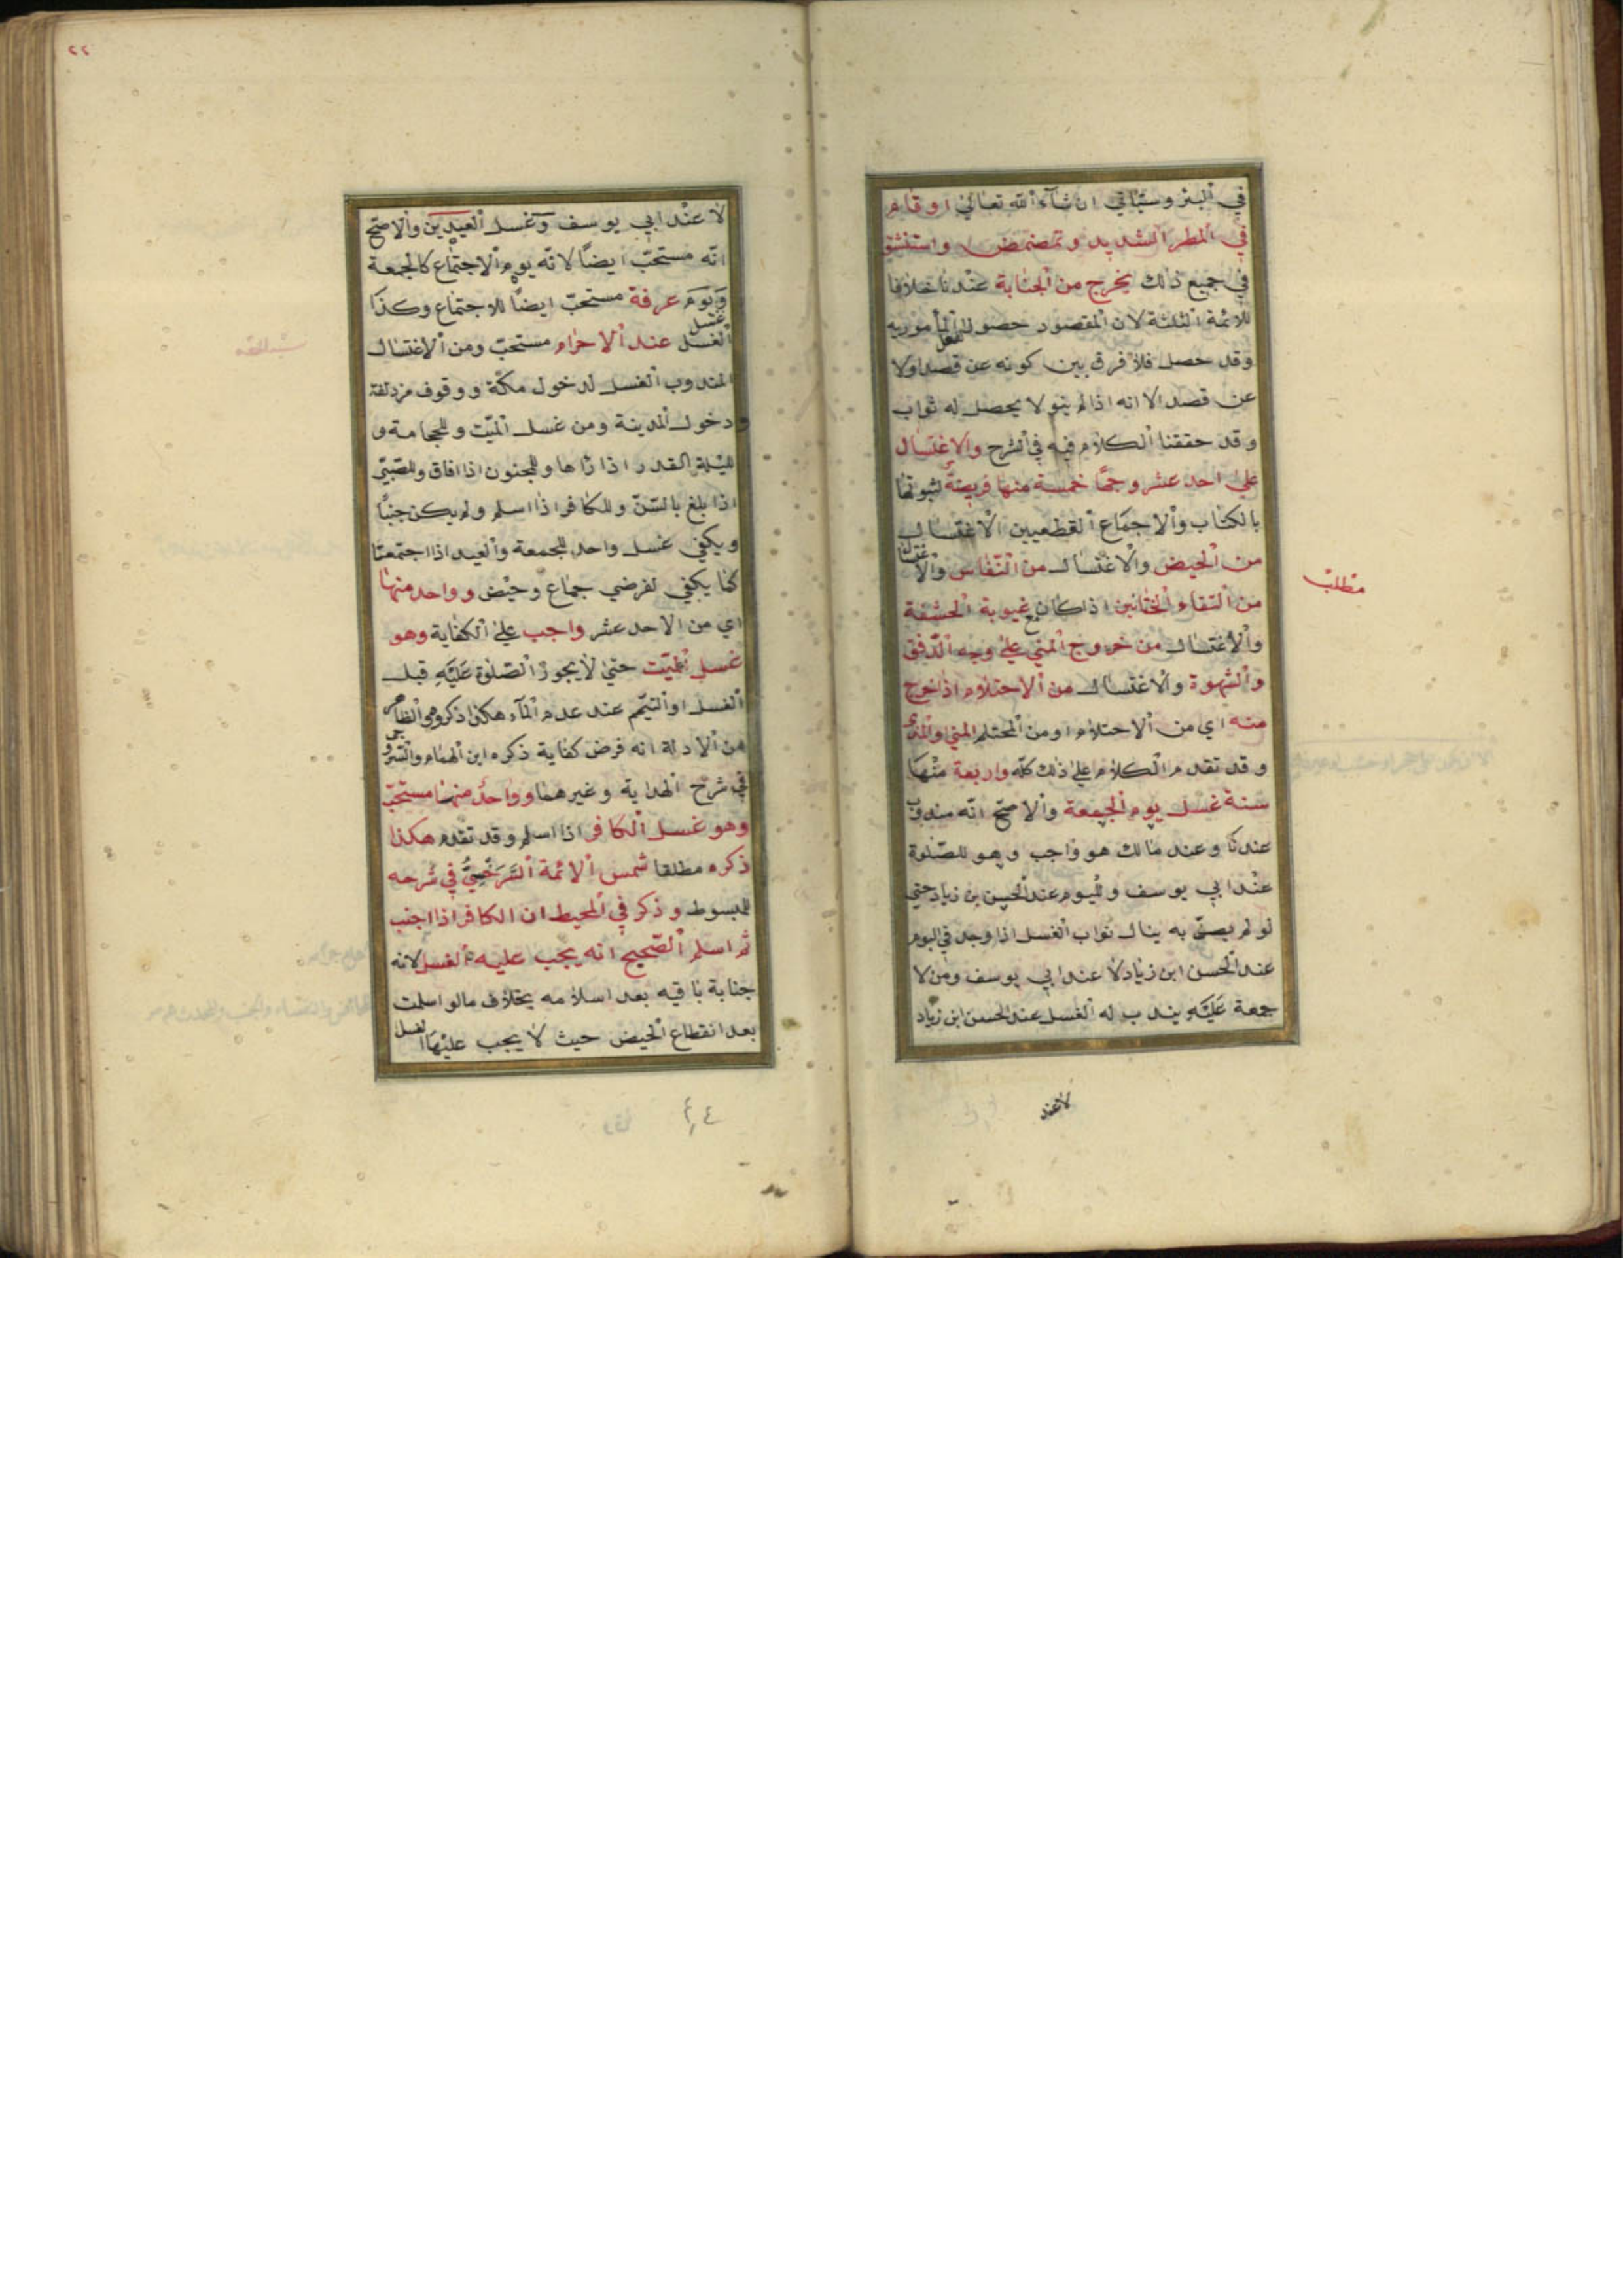 في البئر وسيأتي ان شآء الله تعالى او قام
في المطر الشديد وتمضمض واستنشق
في جميع ذلك يخرج من الجنابة عندنا خلافا
للائمة الثلثة لان المقصود حصول المأمور به
وقد حصل فلا فرق بين كونه عن قصد اولا
عن قصد الا انه اذا لم ينو لا يحصل له ثواب
وقد حققنا الكلام فيه في الشرح والاغتسال
على احد عشر وجها خمسة منها فريضة لثبوتها
بالكتاب والاجماع القطعيين الاغتسال
من الحيض والاغتسال من النفاس والاغتسال
من التقاء الختانين اذا كان مع غيوبة الحشفة
والاغتسال من خروج المني على وجه الدفق
والشهوة والاغتسال من الاحتلام اذا خرج
منه اي من الاحتلام او من المحتلم المني والمذي
وقد تقدم الكلام على ذلك كله واربعة منها
سنة غسل يوم الجمعة والاصح انه مندوب
عندنا وعند مالك هو واجب وهو للصلوة
عند ابي يوسف ولليوم عند الحسن بن زياد حتى
لو لم يصل به ينال ثواب الغسل اذا وجد في اليوم
عند الحسن ابن زياد لا عند ابي يوسف ومن لا
جمعة عليه يندب له الغسل عند الحسن ابن زياد
لا عند
مطلب
٢٢
لا عند ابي يوسف وغسل العيدين والاصح
انه مستحب ايضا لانه يوم الاجتماع كالجمعة
ويوم عرفة مستحب ايضا للاجتماع وكذا
غسل
الغسل عند الاحرام مستحب ومن الاغتسال
المندوب الغسل لدخول مكة ووقوف مزدلفة
ودخول المدينة ومن غسل الميت وللحجامة و
لليلة القدر اذا رآها وللمجنون اذا افاق وللصبي
اذا بلغ بالسن وللكافر اذا اسلم ولم يكن جنبا
ويكفي غسل واحد للجمعة والعيد اذا اجتمعتا
كما يكفي لفرضي جماع وحيض وواحد منها
اي من الاحد عشر واجب على الكفاية وهو
غسل الميت حتى لا يجوز الصلوة عليه قبل
الغسل او التيمم عند عدم المآء هكذا ذكروه والظاهر
من الادلة انه فرض كفاية ذكره ابن الهمام والسروجي
في شرح الهداية وغيرهما وواحد منها مستحب
وهو غسل الكافر اذا اسلم وقد تقدم هكذا
ذكره مطلقا شمس الائمة السرخسي في شرحه
للمبسوط وذكر في المحيط ان الكافر اذا اجنب
ثم اسلم الصحيح انه يجب عليه الغسل لانه
جنابة باقيه بعد اسلامه بخلاف مالو اسلمت
بعد انقطاع الحيض حيث لا يجب عليها الغسل